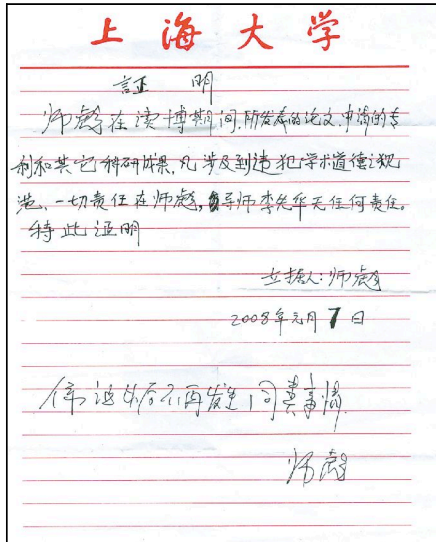 上海大学
証 明
师彪在读博期间,所发表的论文、申请的专
利和其它科研成果,凡涉及到违犯学术道德之规
范,一切责任在师彪,导师李先华无任何责任。
特此证明
立据人:师彪
2008年元月7日
保证今后不再发生同类事情
师彪